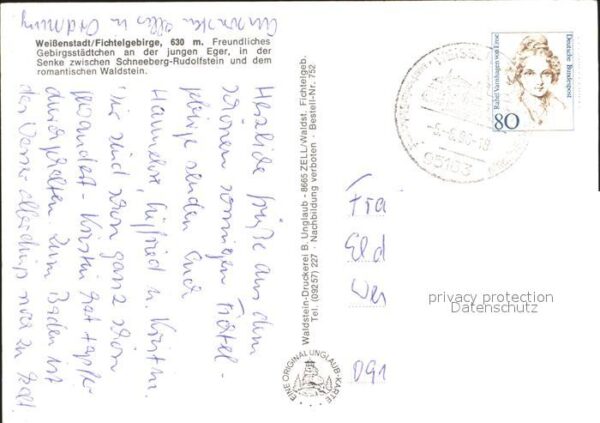 Weißenstadt/Fichtelgebirge, 630 m. Freundliches
Gebirgsstädtchen an der jungen Eger, in der
Senke zwischen Schneeberg-Rudolfstein und dem
romantischen Waldstein.
Herzliche Grüße aus dem
schönen sonnigen Fichtel-
gebirge senden Euch
Hannelore, Siegfried u. Kirstin.
Wir sind schon ganz schön
gewandert - Kirstin hat tapfer
durchgehalten. Zum Baden ist
das Wasser allerdings noch zu kalt.
alles in Ordnung
Waldstein-Druckerei B. Unglaub - 8665 ZELL/Waldst. Fichtelgeb.
Tel. (09257) 227 · Nachbildung verboten · Bestell-Nr. 752
EINE ORIGINAL UNGLAUB-KARTE
Rahel Varnhagen von Ense
Deutsche Bundespost
80
95163
Fra
Eld
Wer
091
privacy protection
Datenschutz